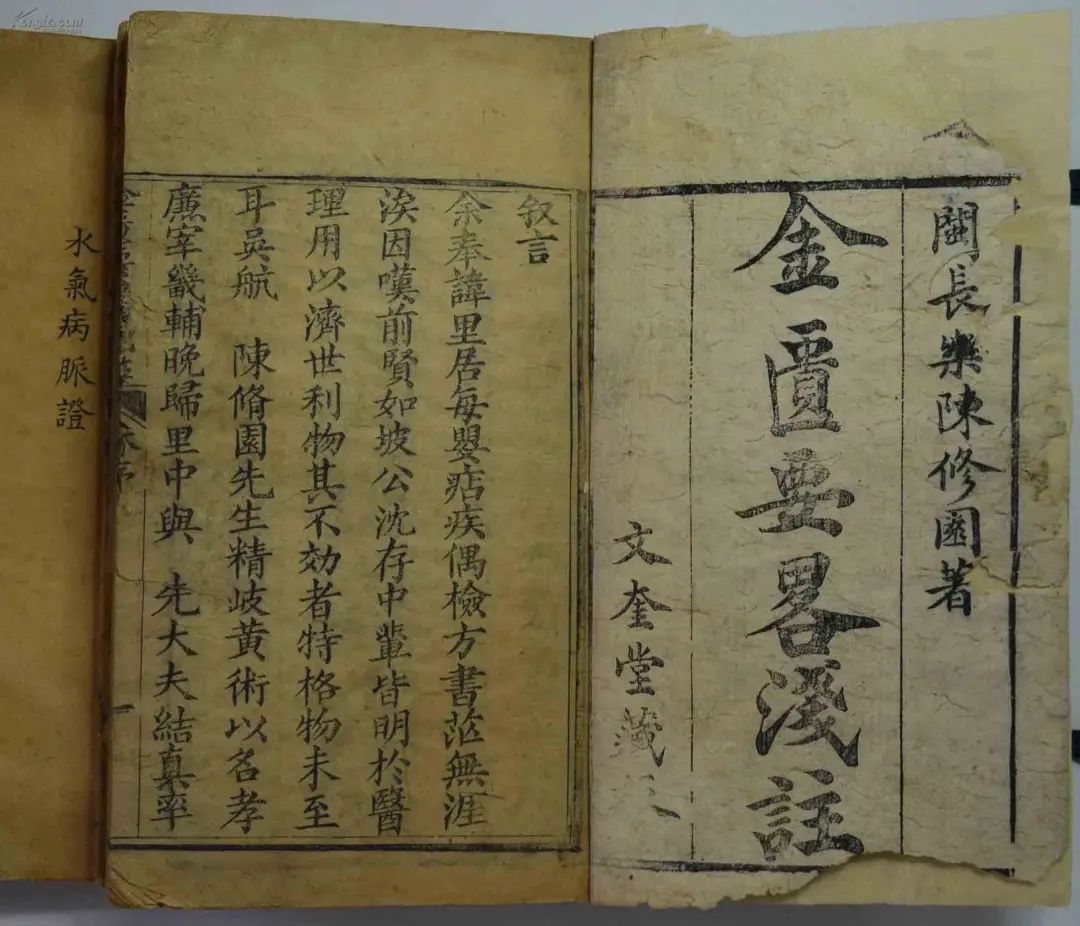 閩長樂陳修園著
金匱要畧淺註
文奎堂藏
叙言
余奉諱里居每嬰痁疾偶檢方書茫無涯
涘因嘆前賢如坡公沈存中輩皆明於醫
理用以濟世利物其不効者特格物未至
耳吳航　陳脩園先生精岐黃術以名孝
廉宰畿輔晚歸里中與　先大夫結真率
水氣病脈證
Kongfz.com